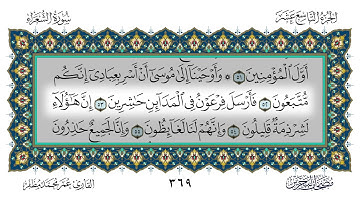 الجزء التاسع عشر
سورة الشعراء
أَوَّلَ ٱلْمُؤْمِنِينَ ٥١ ۞ وَأَوْحَيْنَآ إِلَىٰ مُوسَىٰٓ أَنْ أَسْرِ بِعِبَادِىٓ إِنَّكُم
مُّتَّبَعُونَ ٥٢ فَأَرْسَلَ فِرْعَوْنُ فِى ٱلْمَدَآئِنِ حَٰشِرِينَ ٥٣ إِنَّ هَٰٓؤُلَآءِ
لَشِرْذِمَةٌ قَلِيلُونَ ٥٤ وَإِنَّهُمْ لَنَا لَغَآئِظُونَ ٥٥ وَإِنَّا لَجَمِيعٌ حَٰذِرُونَ
٣٦٩
القارئ عمر محمد مظفر